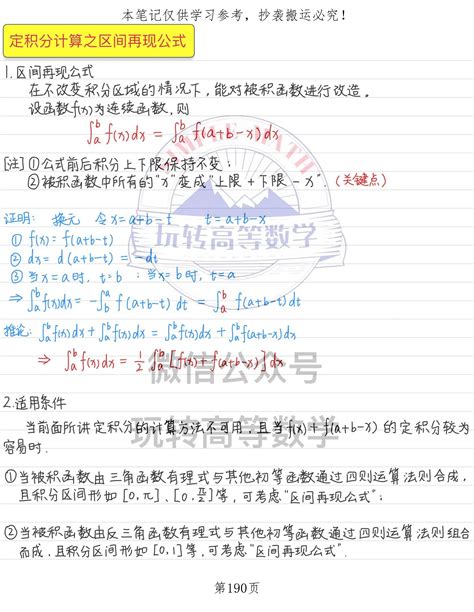 本笔记仅供学习参考，抄袭搬运必究！
定积分计算之区间再现公式
1.区间再现公式
在不改变积分区域的情况下，能对被积函数进行改造。
设函数f(x)为连续函数，则
∫ₐᵇ f(x)dx = ∫ₐᵇ f(a+b-x)dx
[注]①公式前后积分上下限保持不变；
②被积函数中所有的“x”变成“上限+下限-x”.(关键点)
证明：换元 令x=a+b-t t=a+b-x
① f(x)=f(a+b-t)
② dx=d(a+b-t)=-dt
③ 当x=a时，t=b；当x=b时，t=a
⇒∫ₐᵇf(x)dx=-∫ᵇₐ f(a+b-t)dt=∫ₐᵇ f(a+b-t)dt
推论：∫ₐᵇf(x)dx+∫ₐᵇf(x)dx=∫ₐᵇf(x)dx+∫ₐᵇf(a+b-x)dx
⇒ ∫ₐᵇf(x)dx=1/2∫ₐᵇ[f(x)+f(a+b-x)]dx
微信公众号
2.适用条件
玩转高等数学
当前面所讲定积分的计算方法不可用，且当f(x)+f(a+b-x)的定积分较为
容易时.
①当被积函数由三角函数有理式与其他初等函数通过四则运算法则合成，
且积分区间形如[0,π]、[0,π/2]等，可考虑“区间再现公式”；
②当被积函数由反三角函数有理式与其他初等函数通过四则运算法则组合
而成，且积分区间形如[0,1]等，可考虑“区间再现公式”.
第190页